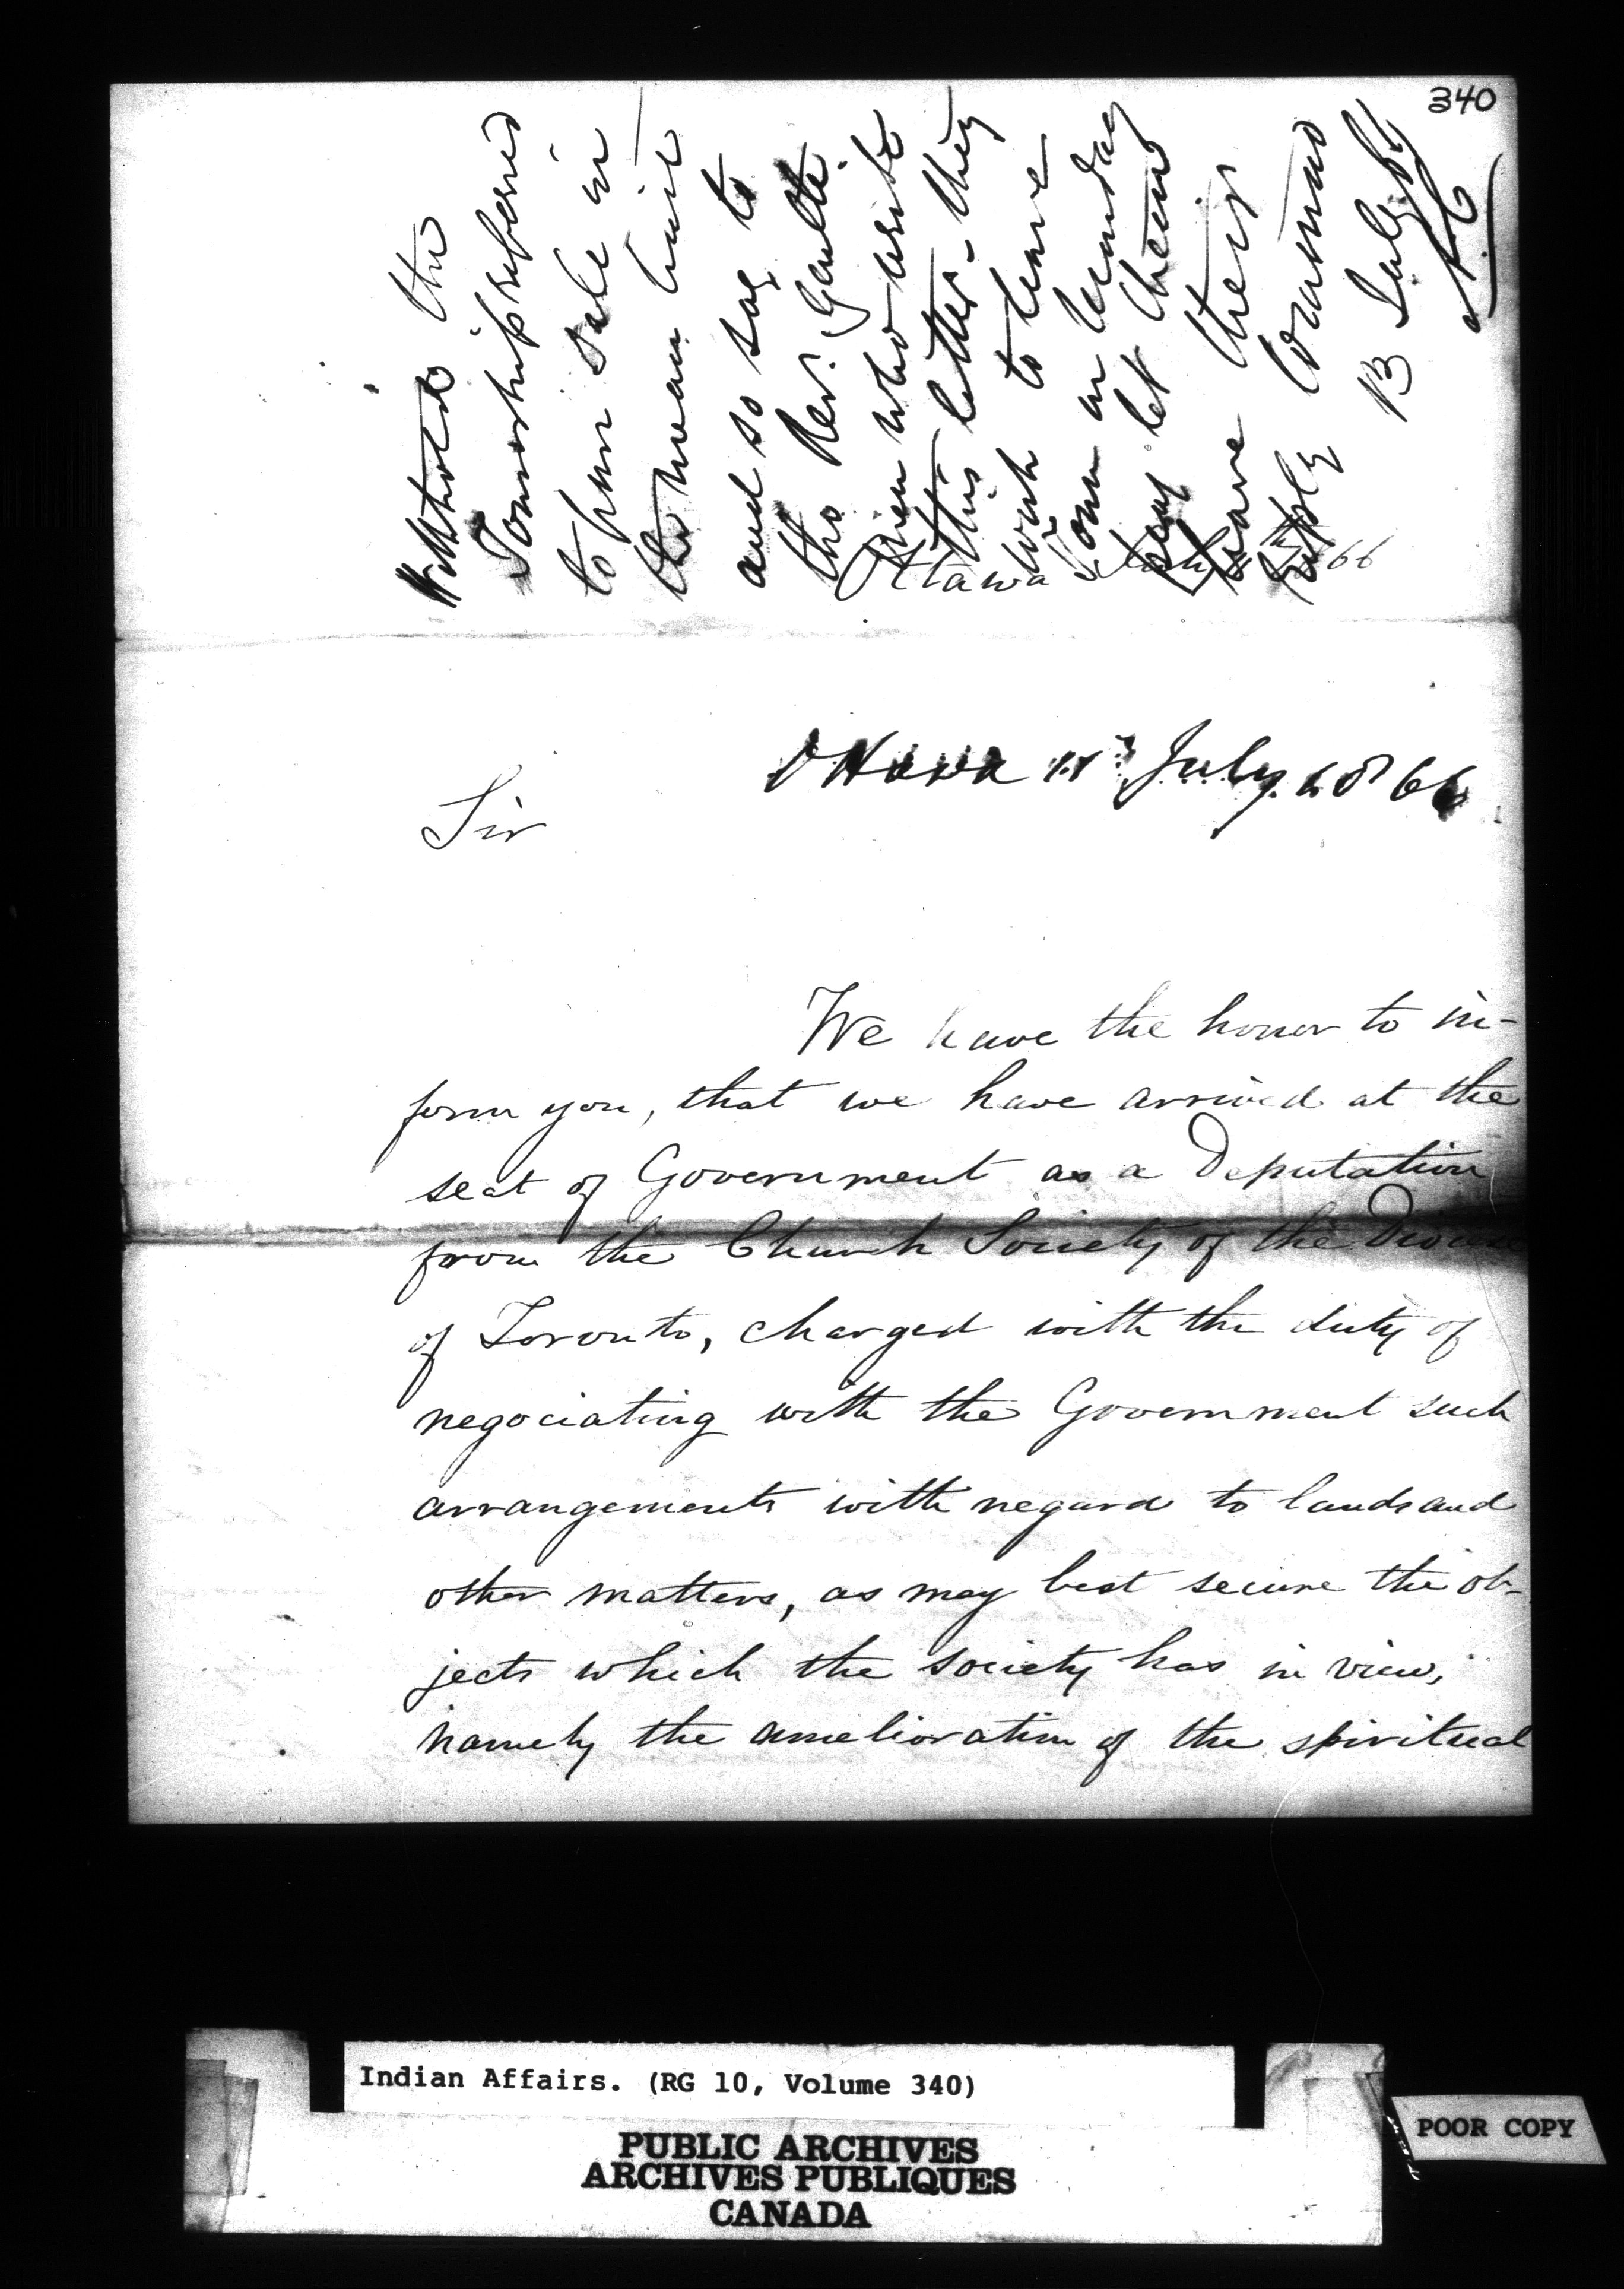 340
Withhold the
Township referred
to from sale in
the mean time
and so say to
the Rev. Gentle
men who write
this letter – they
wish to leave
on Monday
let them
have their
reply
13 July 66
Ottawa July 1866
Ottawa 11th July 1866
Sir
We have the honor to in-
form you, that we have arrived at the
seat of Government as a Deputation
from the Church Society of the Diocese
of Toronto, charged with the duty of
negociating with the Government such
arrangements with regard to lands and
other matters, as may best secure the ob-
jects which the society has in view,
namely the amelioration of the spiritual
Indian Affairs. (RG 10, Volume 340)
PUBLIC ARCHIVES
ARCHIVES PUBLIQUES
CANADA
POOR COPY